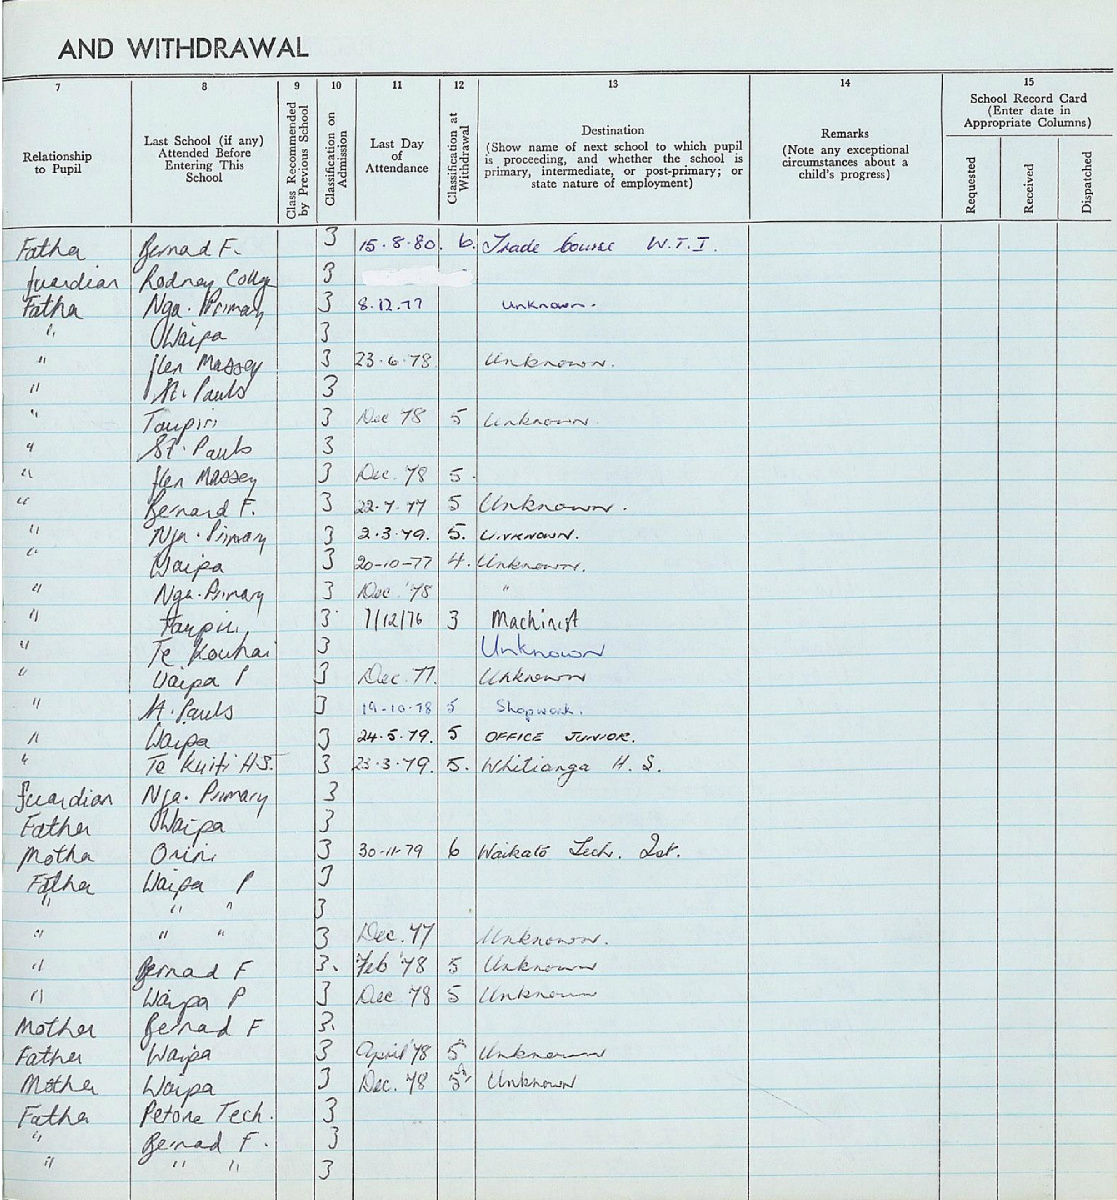 AND WITHDRAWAL
7 8 9 10 11 12 13 14 15
Relationship to Pupil
Last School (if any) Attended Before Entering This School
Class Recommended by Previous School
Classification on Admission
Last Day of Attendance
Classification at Withdrawal
Destination
(Show name of next school to which pupil is proceeding, and whether the school is primary, intermediate, or post-primary; or state nature of employment)
Remarks
(Note any exceptional circumstances about a child's progress)
School Record Card
(Enter date in Appropriate Columns)
Requested Received Dispatched
Father Bernad F. 3 15.8.80. 6. Trade Course W.T.I.
Guardian Rodney College 3
Father Nga. Primary 3 8.12.77 Unknown.
" Waipa 3
" Glen Massey 3 23.6.78. Unknown.
" St. Pauls 3
" Taupiri 3 Dec 78 5 Unknown.
" St. Pauls 3
" Glen Massey 3 Dec. '78 5.
" Bernard F. 3 22.7.77 5 Unknown.
" Nga. Primary 3 2.3.79. 5. Unknown.
" Waipa 3 20-10-77 4. Unknown.
" Nga. Primary 3 Dec '78 "
" Taupiri 3 7/12/76 3 Machinist
" Te Kouhai 3 Unknown
" Waipa P 3 Dec. 77. Unknown
" St. Pauls 3 19-10-78 5 Shopwork.
" Waipa 3 24.5.79. 5 OFFICE JUNIOR.
" Te Kuiti H.S. 3 23.3.79. 5. Whitianga H.S.
Guardian Nga. Primary 3
Father Waipa 3
Mother Orini 3 30-11-79 6 Waikato Tech. Inst.
Father Waipa P 3
" " " 3
" " " 3 Dec. 77 Unknown.
" Bernad F 3. Feb '78 5 Unknown
" Waipa P 3 Dec '78 5 Unknown
Mother Bernad F 3.
Father Waipa 3 April '78 5 Unknown
Mother Waipa 3 Dec. '78 Unknown
Father Petone Tech. 3
" Bernad F. 3
" " " 3